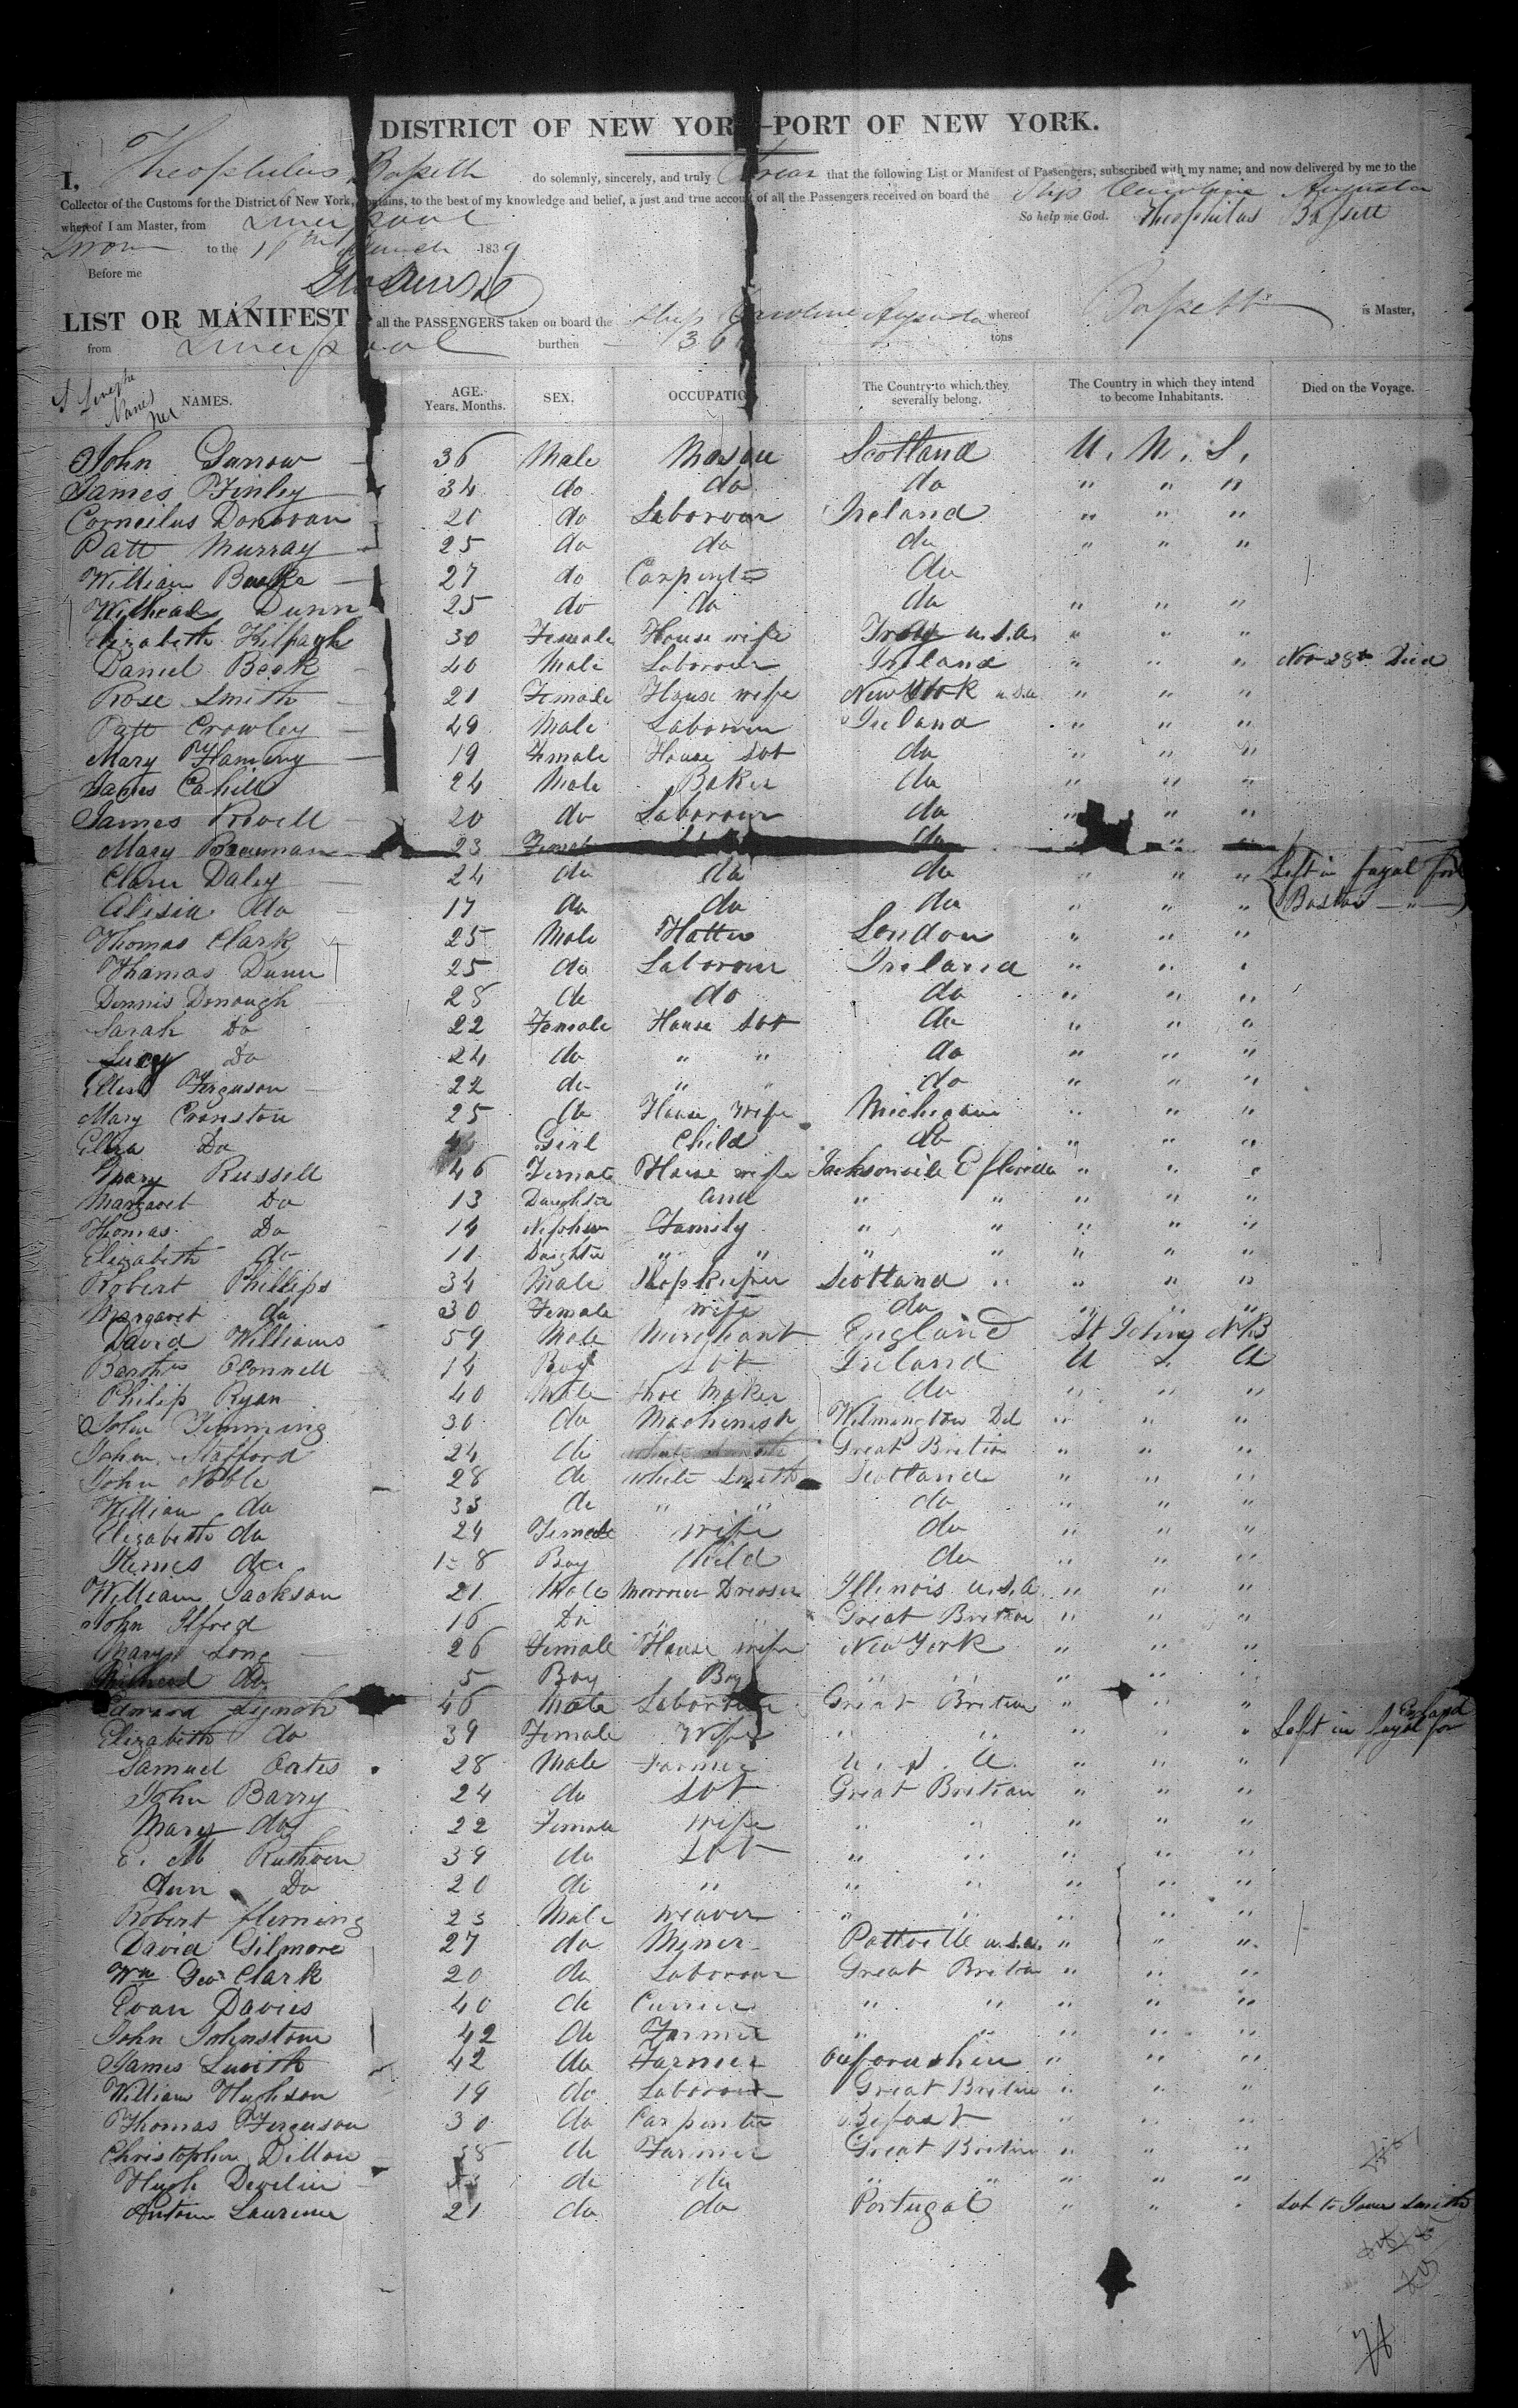 DISTRICT OF NEW YORK—PORT OF NEW YORK.
I, Theophilus Bassett do solemnly, sincerely, and truly Swear that the following List or Manifest of Passengers, subscribed with my name, and now delivered by me to the
Collector of the Customs for the District of New York, contains, to the best of my knowledge and belief, a just and true account of all the Passengers received on board the Ship Caroline Augusta
whereof I am Master, from Liverpool So help me God. Theophilus Bassett
Sworn to the March 1839
Before me
LIST OR MANIFEST all the PASSENGERS taken on board the Ship Caroline Augusta whereof Bassett is Master,
from Liverpool burthen tons
NAMES. AGE. Years, Months. SEX. OCCUPATION The Country to which they severally belong. The Country in which they intend to become Inhabitants. Died on the Voyage.
John 36 Male Mason Scotland
James Finley 34 do do do " " "
Corneilus Donovan 20 do Laborour Ireland " " "
Patt Murray 25 do do do " " "
William 27 do Carpenter do
Dunn 25 do do do " " "
Elizabeth 30 Female House wife Troy U.S.A. " " "
Daniel 40 Male Laborour Ireland " " " Nov 28th Died
Rose Smith 21 Female House wife New York U.S.A " " "
Patt Crowley Male Laborour Ireland " " "
Mary 19 Female House Svt do " " "
James Cahill 24 Male Baker do " " "
James 20 do Laborour do " " "
Mary 23 Female do
Daley 24 do do do " " " Left in fayal for
Alisia do 17 do do do " " " Boston "
Thomas Clark 25 Male Hatter London " " "
Thomas Dunn 25 do Laborour Ireland " " "
Dennis Donough 28 do do do " " "
Sarah Do 22 Female House Svt do " " "
Lucy Do 24 do " " do " " "
Ellen Ferguson 22 do " " do " " "
Mary Cranston 25 do House Wife Michigan " " "
Eliza Do Girl Child do " " "
Mary Russell 46 Female House wife Jacksonvile E florida " " "
Margaret Do 13 Daughter and " " " " "
Thomas Do 14 Nephew Family " " " " "
Elizabeth do 11 Daughter " " " " " " "
Robert Phillips 34 Male Shopkeeper Scotland " " " "
Margaret do 30 Female wife do " " "
David Williams 59 Male Merchant England St Johns N.B
OConnell 14 Boy Svt Ireland U S A
Philip Ryan 40 Male Shoe Maker do " " "
John 30 do Machinish Wilmington Del " " "
John Stafford 24 do Great Britian " " "
John Noble 28 do White Smith Scotland " " "
William do 33 do " " do " " "
Elizabeth do 24 Female wife do " " "
do 1-8 Boy Child do " " "
William Jackson 21 Male Dresser Illinois U.S.A " " "
John Ilfred 16 Do " " Great Britian " " "
Mary Long 26 Female House wife New York " " "
do 5 Boy Boy " " " " "
Edward Lynch 46 Male Laborour Great Britian " " "
Elizabeth do 39 Female Wife " " " " " Left in fayal for England
Samuel Oates 28 Male Farmer U. S. A. " " "
John Barry 24 do Svt Great Britian " " "
Mary do 22 Female Wife " " " " "
E. M Ruthven 39 do Svt " " " " "
Ann Do 20 do " " " " " "
Robert fleming 23 Male Weaver " " " " "
David Gilmore 27 do Miner Pottsville U.S.A. " " "
Wm Geo Clark 20 do Laborour Great Britian " " "
Evan Davies 40 do Currier " " " " "
John Johnstone 42 do Farmer " " " " "
James Smith 42 do Farmer " " "
William Hughson 19 do Laborour Great Britian " " "
Thomas Ferguson 30 do Carpenter Belfast " " "
Christopher Dillon 38 do Farmer Great Britian " " "
Hugh Develin do do " " " " "
Antone Laurence 21 do do Portugal " " " Svt to James Smith